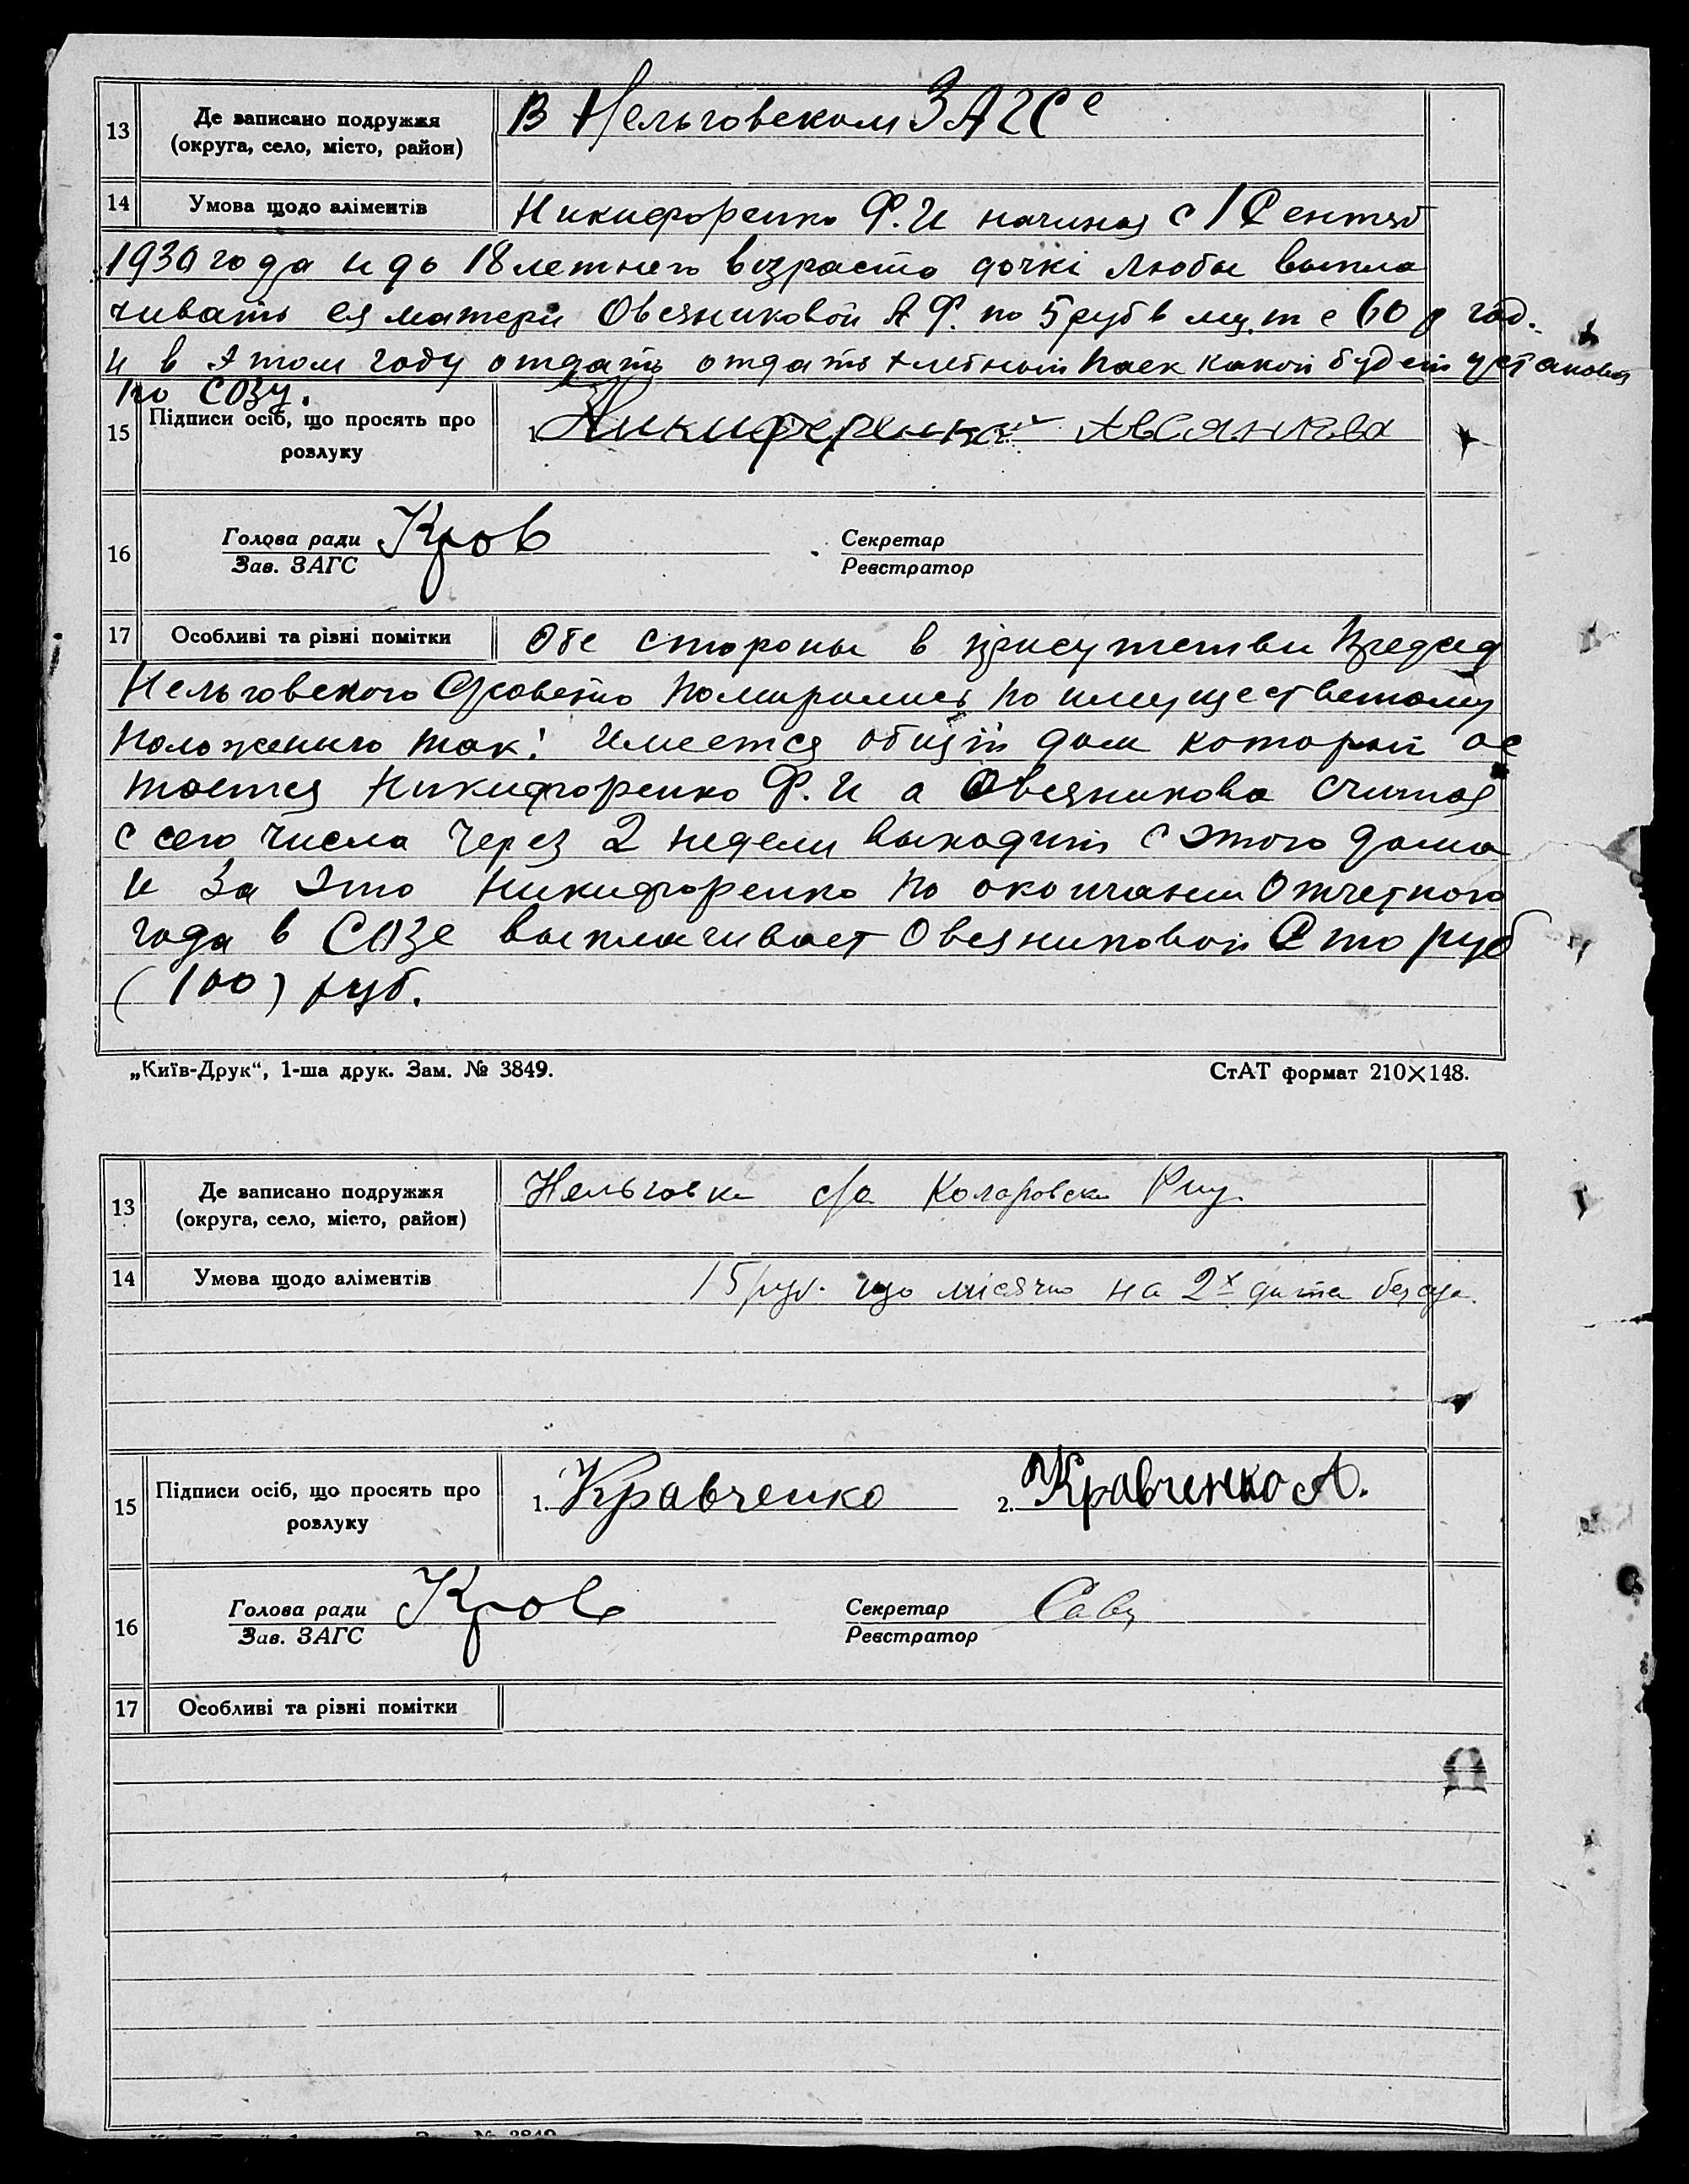 13
Де записано подружжя
(округа, село, місто, район)
В Нельговском ЗАГСе
14
Умова щодо аліментів
Никифоренко Ф. И начиная с 1 Сентяб
1930 года и до 18 летнего возраста дочкі Любы выпла
чивать ея матери Овсяниковой А Ф. по 5 руб в м. т е 60 р год.
и в этом году отдать отдать хлебный паек какой будет установл
по СОЗу.
15
Підписи осіб, що просять про
розлуку
1. Никифоренко Авсянкова
16
Голова ради
Зав. ЗАГС
Секретар
Реєстратор
17
Особливі та різні помітки
Обе стороны в присутствии Председ
Нельговского С/совета помирились по имуществ
положению так: имеется общій дом который ос
тается Никифоренко Ф. И а Овсяникова считая
с сего числа через 2 недели выходит с этого дома
и за это Никифоренко по окончании Отчетного
года в СОЗе выплачивает Овсяниковой Сто руб
(100) руб.
„Київ-Друк“, 1-ша друк. Зам. № 3849.
СтАТ формат 210×148.
13
Де записано подружжя
(округа, село, місто, район)
Нельговка с/р Коларовск
14
Умова щодо аліментів
15 руб. що місячно на 2х
15
Підписи осіб, що просять про
розлуку
1. Кравченко 2. Кравченко А.
16
Голова ради
Зав. ЗАГС
Секретар
Реєстратор
17
Особливі та різні помітки